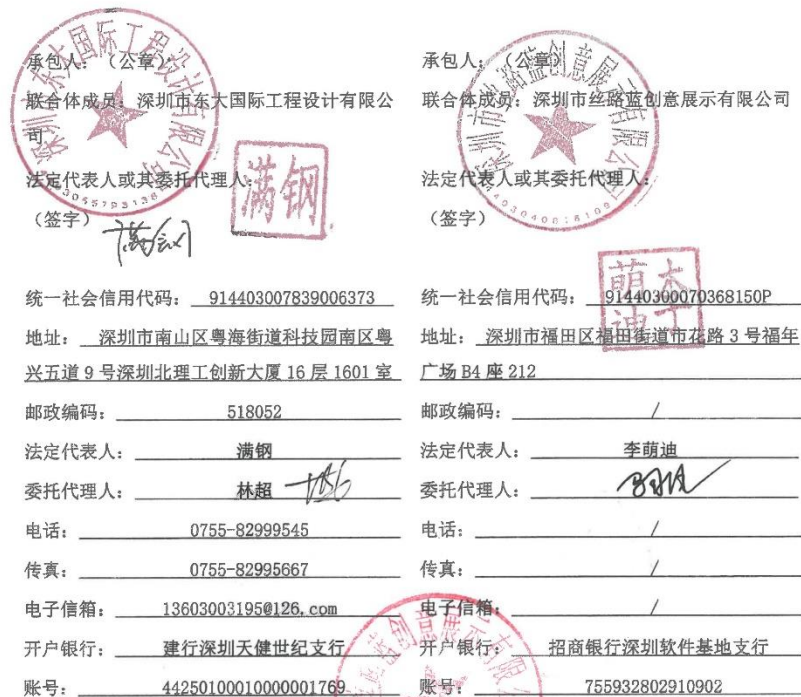 承包人：（公章）
联合体成员：深圳市东大国际工程设计有限公
司
法定代表人或其委托代理人：
（签字）
满钢
统一社会信用代码： 914403007839006373
地址： 深圳市南山区粤海街道科技园南区粤
兴五道 9 号深圳北理工创新大厦 16 层 1601 室
邮政编码： 518052
法定代表人： 满钢
委托代理人： 林超
电话： 0755-82999545
传真： 0755-82995667
电子信箱： 13603003195@126.com
开户银行： 建行深圳天健世纪支行
账号： 44250100010000001769
深圳市东大国际工程设计有限公司
承包人：（公章）
联合体成员：深圳市丝路蓝创意展示有限公司
法定代表人或其委托代理人：
（签字）
统一社会信用代码： 91440300070368150P
地址： 深圳市福田区福田街道市花路 3 号福年
广场 B4 座 212
邮政编码： /
法定代表人： 李萌迪
委托代理人：
电话： /
传真： /
电子信箱： /
开户银行： 招商银行深圳软件基地支行
账号： 755932802910902
深圳市丝路蓝创意展示有限公司